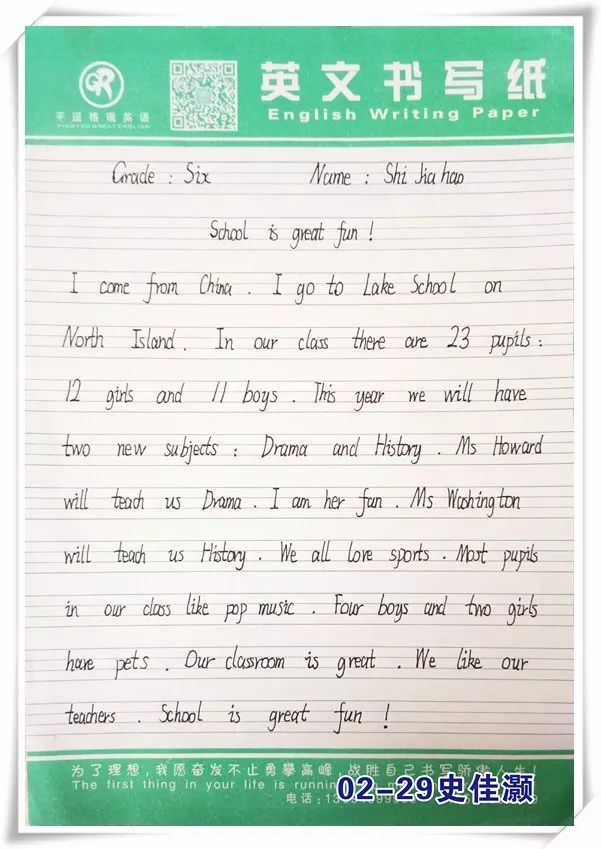 GR
平遥格瑞英语
PINGYAO GREAT ENGLISH
英文书写纸
English Writing Paper
Grade : Six Name : Shi Jia hao
School is great fun !
I come from China . I go to Lake School on
North Island . In our class there are 23 pupils :
12 girls and 11 boys . This year we will have
two new subjects : Drama and History . Ms Howard
will teach us Drama . I am her fan . Ms Washington
will teach us History . We all love sports . Most pupils
in our class like pop music . Four boys and two girls
have pets . Our classroom is great . We like our
teachers . School is great fun !
为了理想，我愿奋发不止勇攀高峰，战胜自己书写骄傲人生！
The first thing in your life is running
电话：13
02-29史佳灏